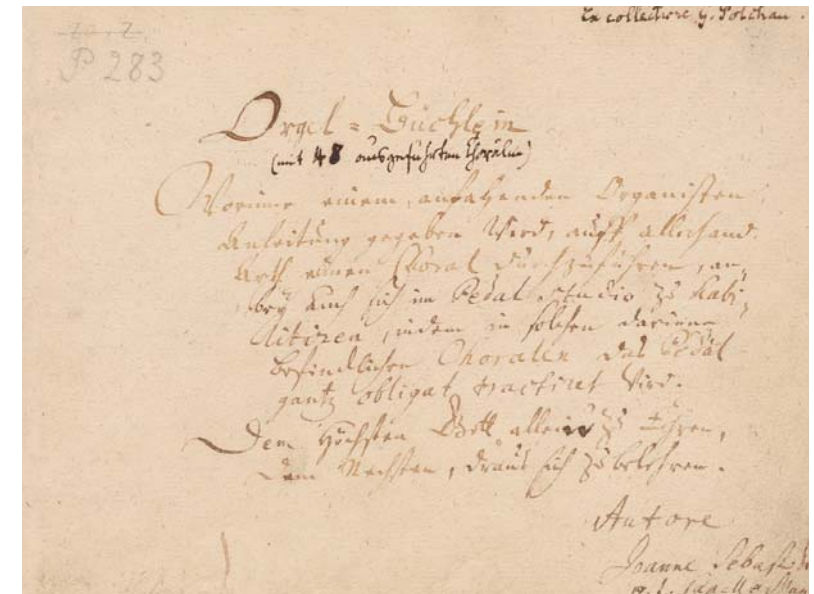 Ex collectione G. Polchau.
P 283
Orgel=Büchlein
(mit 48 ausgeführten Chorälen)
Worinne einem anfahenden Organisten
Anleitung gegeben wird, auff allerhand
Arth einen Choral durchzuführen, an-
bey auch sich im Pedal studio zu habi-
litiren, indem in solchen darinne
befindlichen Choralen das Pedal
gantz obligat tractiret wird.
Dem Höchsten Gott allein' zu Ehren,
Dem Nechsten, draus sich zu belehren.
Autore
Joanne Sebast
p. t.